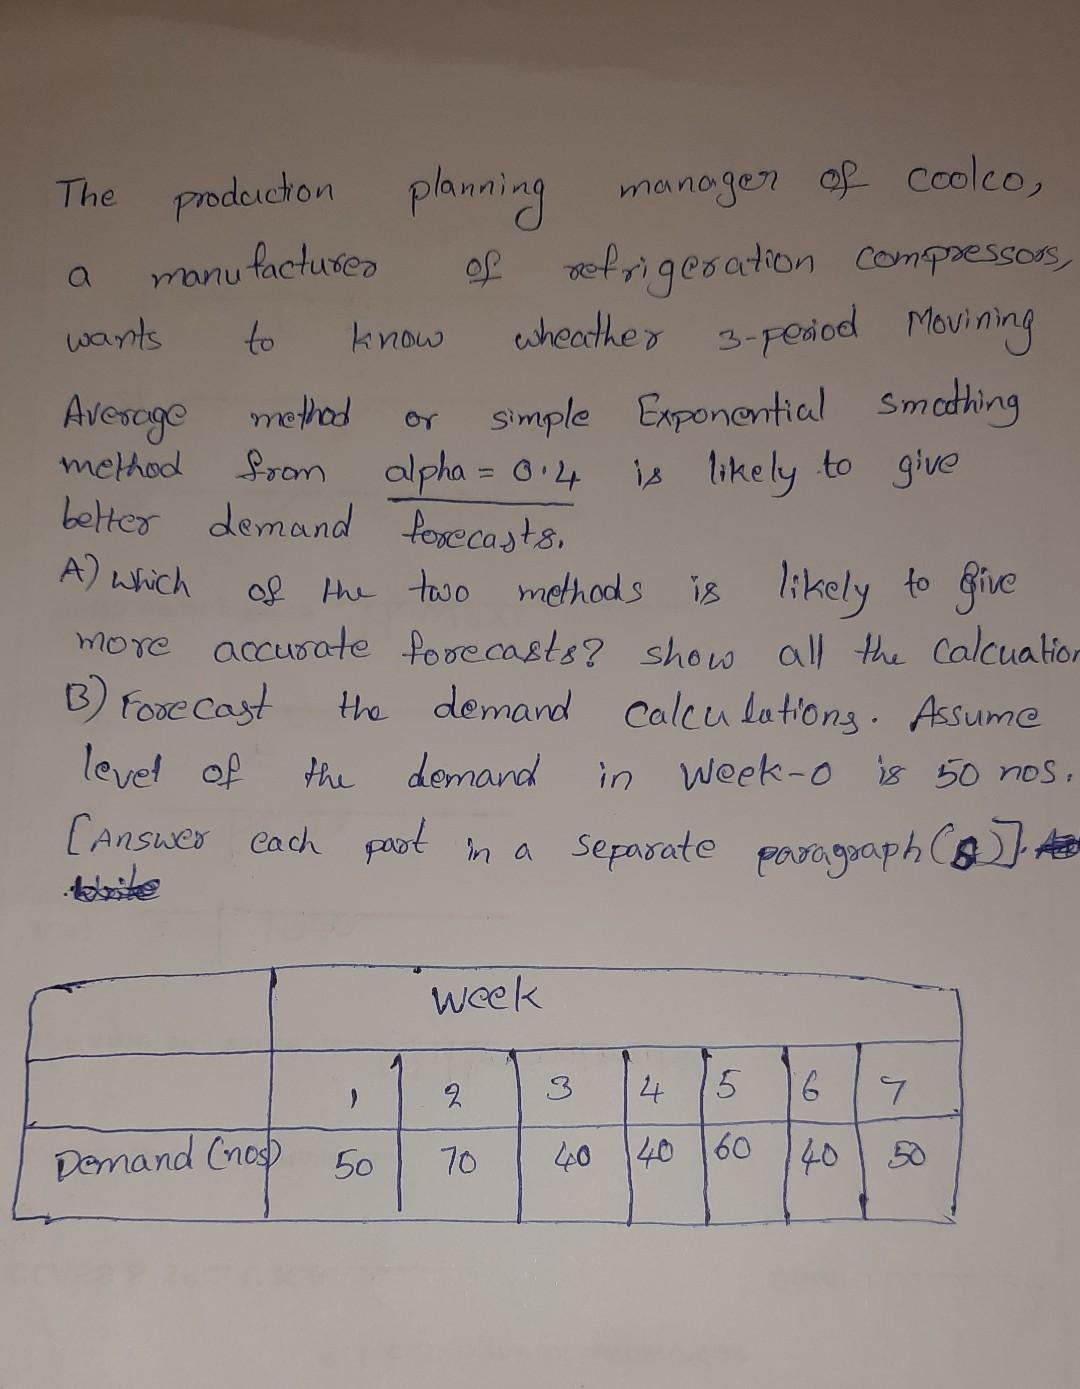 The production planning manager of coolco,
a manufacturer of refrigeration compressors,
wants to know wheather 3-period Movining
Average method or simple Exponential smoothing
method from alpha = 0.4 is likely to give
better demand forecasts.
A) which of the two methods is likely to give
more accurate forecasts? show all the calcuation
B) Forecast the demand calculations. Assume
level of the demand in week-0 is 50 nos.
[Answer each part in a separate paragraph(s)].
week
1 2 3 4 5 6 7
Demand (nos) 50 70 40 40 60 40 50